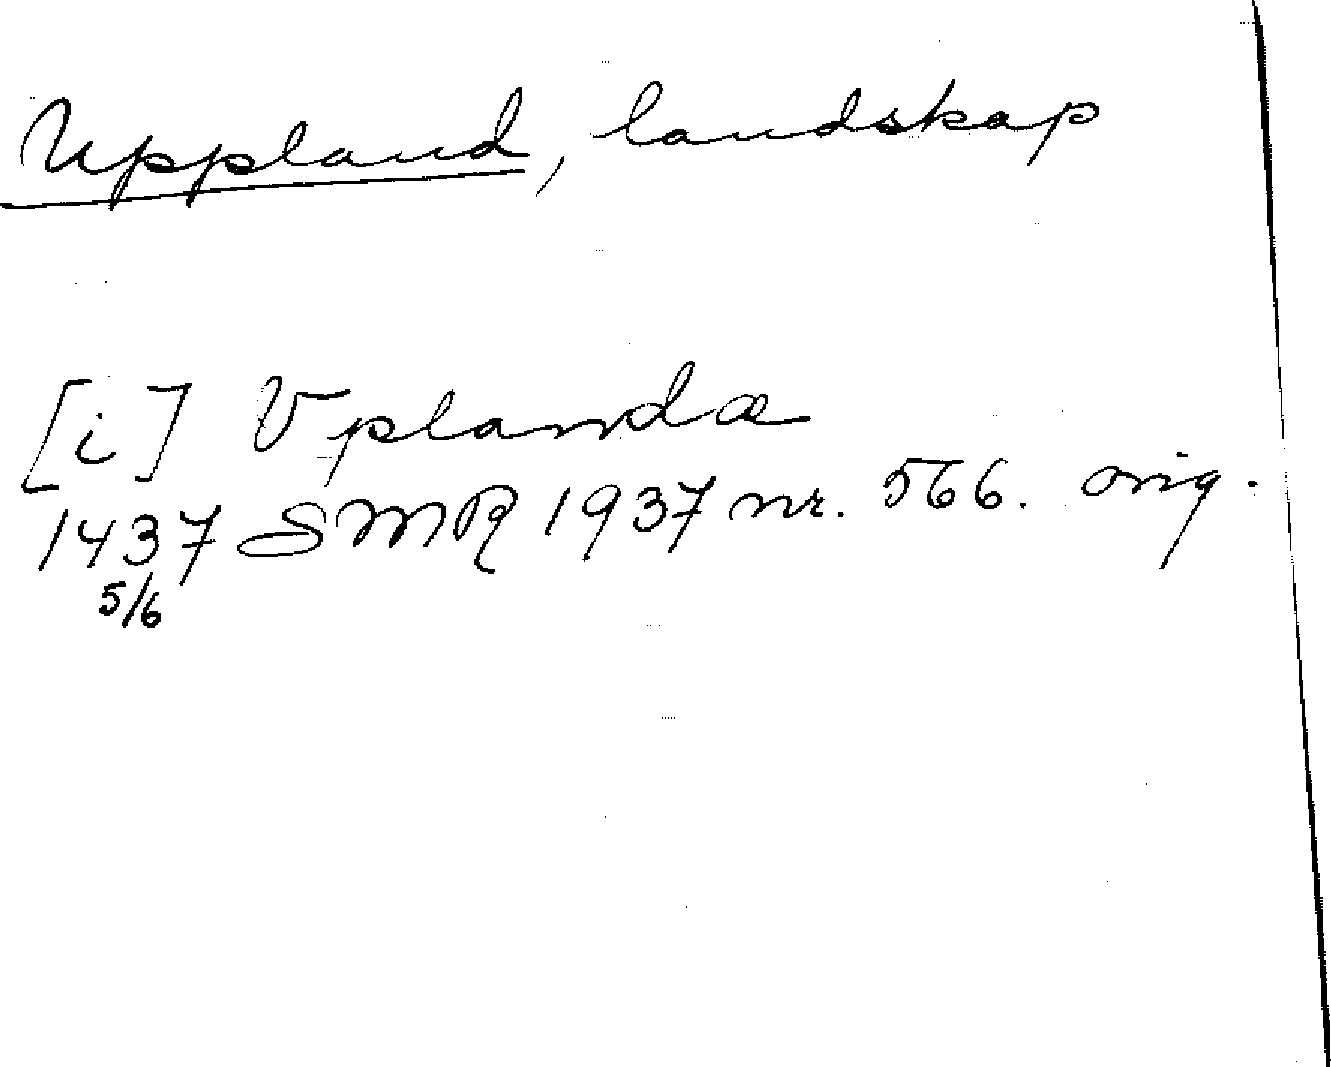 Uppland, landskap
[i] Vplandæ
1437 SMR 1937 nr. 566. orig.
5/6